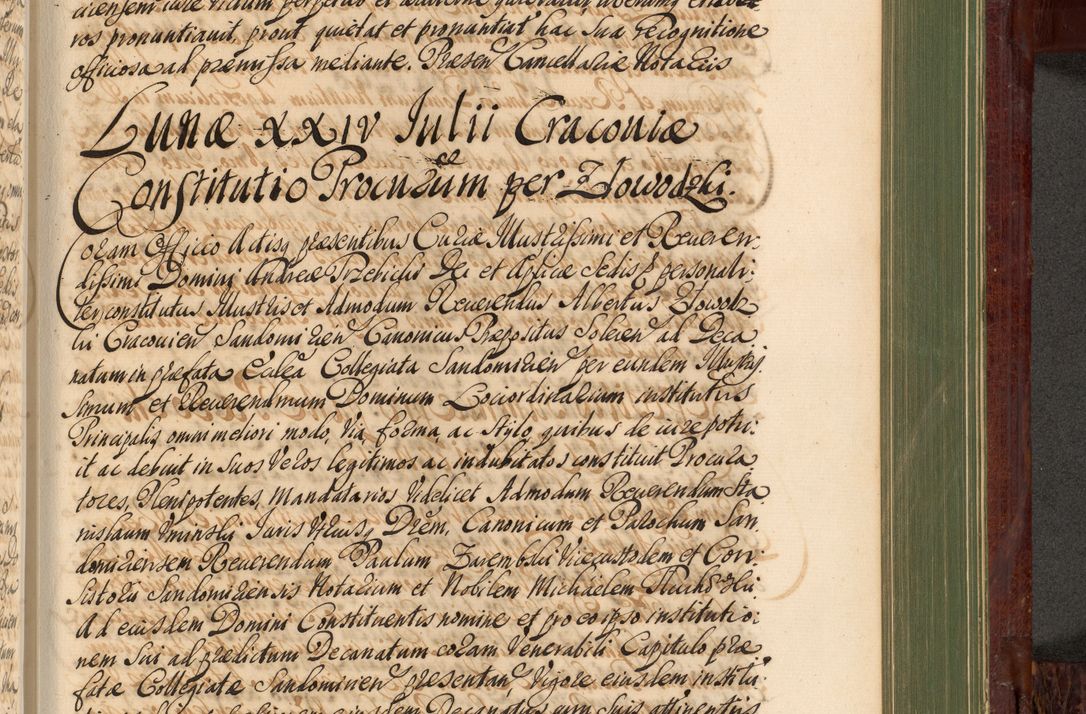 ros pronuntiauit, prout quietat et pronuntiat hac sua recognitione
officiosa ad præmissa mediante. Præsen Cancellariæ Notariis
Lunæ XXIV Iulii Cracouiæ
Constitutio Procurūm per Złowodzki.
Coram Officio Actisq præsentibus Curiæ Illustrissimi et Reueren
dissimi Domini Andreæ Trzebicki Dei et Aplicæ Sedis p personali
ter constitutus Illustris et Admodum Reuerendus Albertus Zlowodz
ki Cracouien Sandomirien Canonicus Præpositus Solcien ad Deca
natum in præfata Ecclea Collegiata Sandomirien per eundem Illustris
simum et Reuerendmum Dominum Lociordinarium institutus
Principalis omni meliori modo, via, forma, ac stylo, quibus de iure potu
it ac debuit in suos veros legitimos ac indubitatos constituit Procura
tores, Plenipotentes, Mandatarios videlicet Admodum Reuerendum Sta
nislaum Vminski Iuris Vtriusq Drem, Canonicum et Parochum San
domiriensem Reuerendum Paulum Zarembski Vicecustodem et Con
sistorii Sandomiriensis Notarium et Nobilem Michaelem
Ad eiusdem Domini Constituentis nomine et pro eo ipso institutio
nem sui ad prædictum Decanatum coram Venerabili Capitulo præ
fatæ Collegiatæ Sandomirien præsentan, vigore eiusdem institu
eiusdem Decanatus cum suis attinentiis